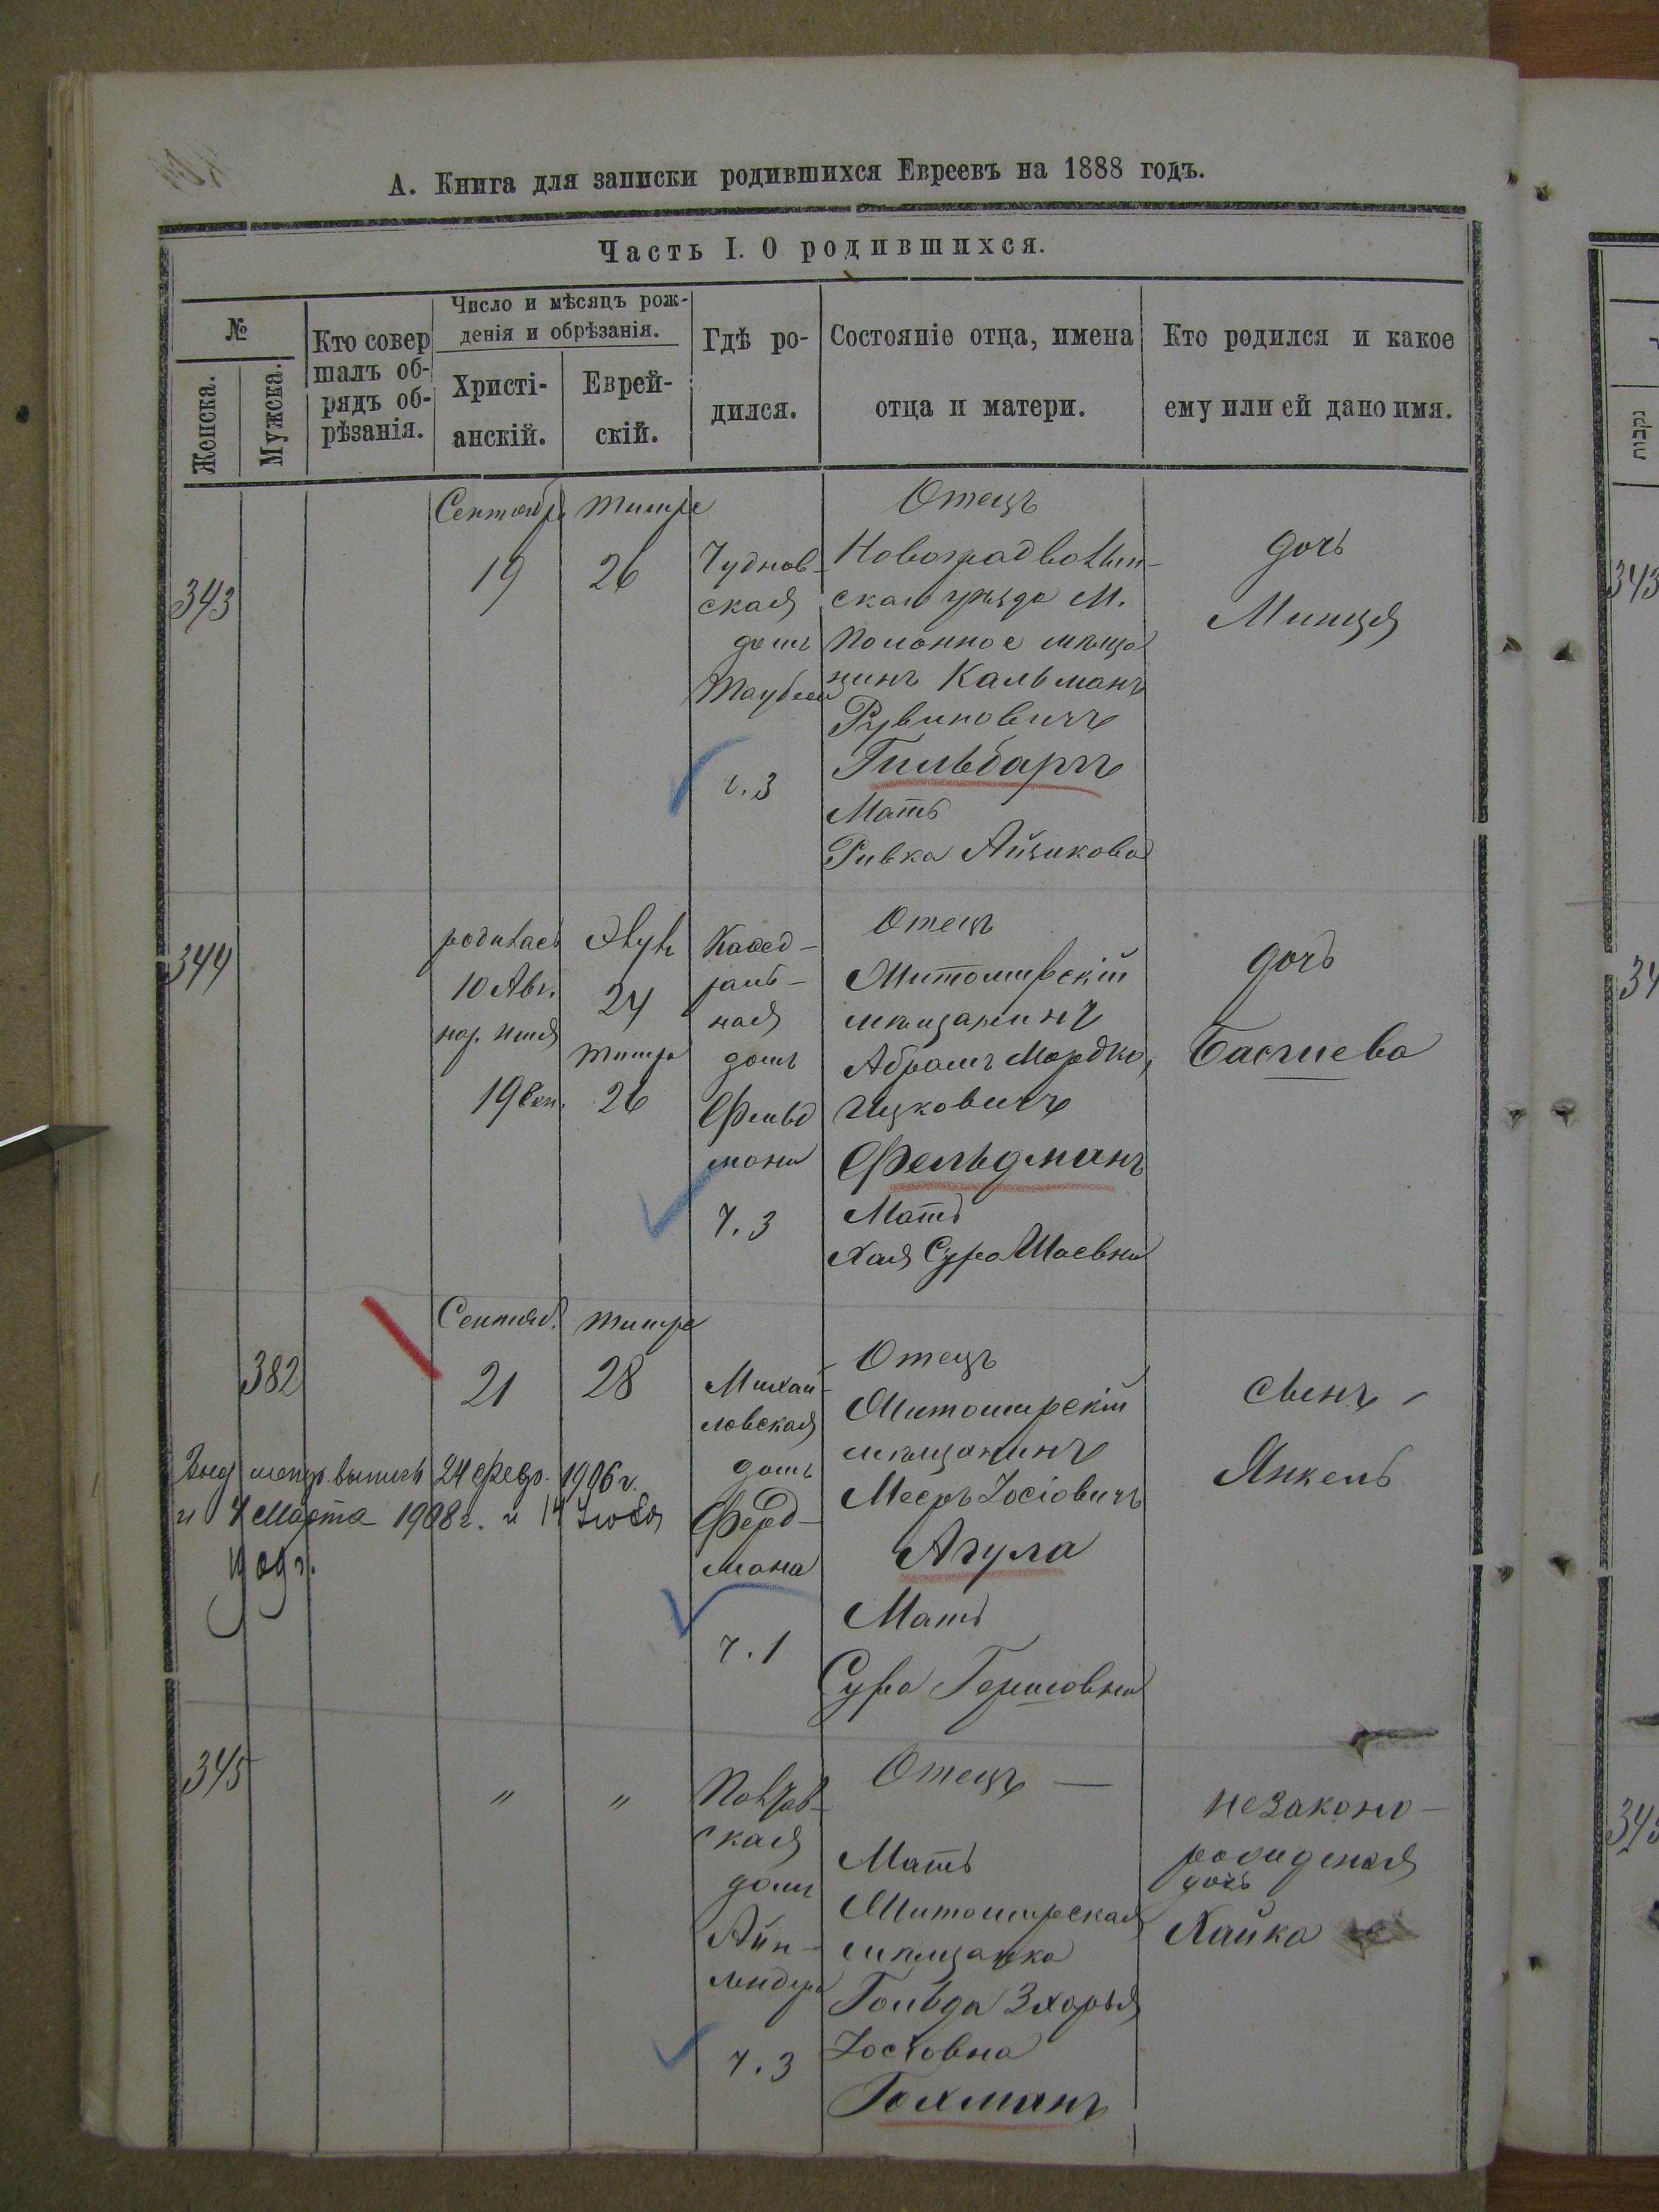 А. Книга для записки родившихся Евреевъ на 1888 годъ.
Часть I. О родившихся.
№
Женска.
Мужска.
Кто совер
шалъ об-
рядъ об-
рѣзанія.
Число и мѣсяцъ рож-
денія и обрѣзанія.
Христі-
анскій.
Еврей-
скій.
Гдѣ ро-
дился.
Состояніе отца, имена
отца и матери.
Кто родился и какое
ему или ей дано имя.
343
Сентябр
19
Тишре
26
Чуднов-
ская
домъ
ч. 3
Отецъ
Новоградволын-
скаго уѣзда М.
Полонное мѣща
нинъ Кальманъ
Рувиновичъ
Гильбаргъ
Мать
Ривка Айзикова
дочь
Минця
344
родилась
10 Авг.
нар. имя
19 Сен.
Элулъ
24
Тишре
26
Каѳед-
раль-
ная
домъ
Фельд
мана
ч. 3
Отецъ
Житомирскій
мѣщанинъ
Абрамъ Мордко
Ицковичъ
Фельдманъ
Мать
Хая Сура Шаевна
дочь
Басшева
382
Сентяб.
21
Тишре
28
Выд метр. выпись 24 февр. 1906 г.
и 4 Марта 1908 г. и 14
1909 г.
Михай-
ловская
домъ
Ферд-
мана
ч. 1
Отецъ
Житомирскій
мѣщанинъ
Мееръ Іосіовичъ
Агула
Мать
Сура Гершовна
сынъ
Янкель
345
"
"
ская
домъ
Айн-
ч. 3
Отецъ —
Мать
Житомирская
мѣщанка
Гольда Зхарья
Іосковна
Гохманъ
незаконо-
рожденая
дочь
Хайка
343
34
345
נקבות